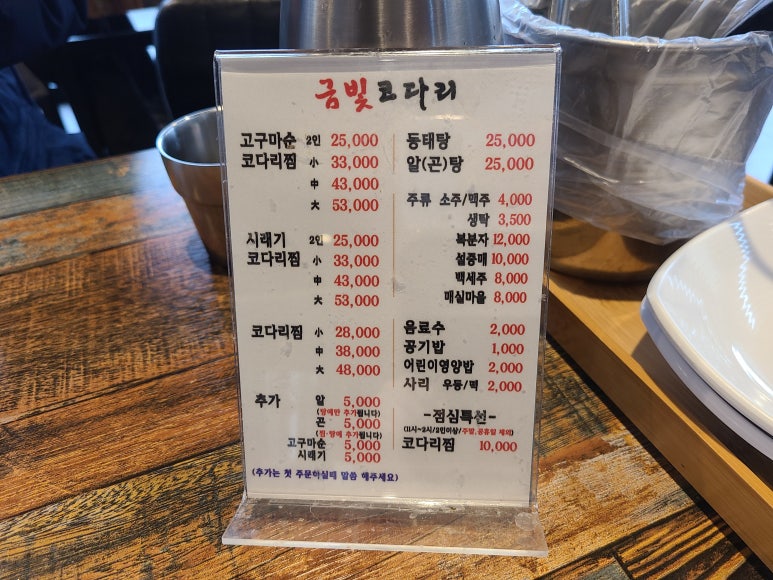 금빛코다리
고구마순 2인 25,000
코다리찜 小 33,000
中 43,000
大 53,000
시래기 2인 25,000
코다리찜 小 33,000
中 43,000
大 53,000
코다리찜 小 28,000
中 38,000
大 48,000
추가 알 5,000
(탕에만 추가됩니다)
곤 5,000
(찜·탕에 추가됩니다)
고구마순 5,000
시래기 5,000
(추가는 첫 주문하실때 말씀 해주세요)
동태탕 25,000
알(곤)탕 25,000
주류 소주/맥주 4,000
생탁 3,500
복분자 12,000
설중매 10,000
백세주 8,000
매실마을 8,000
음료수 2,000
공기밥 1,000
어린이영양밥 2,000
사리 우동/떡 2,000
-점심특선-
(11시~2시/2인이상/주말,공휴일 제외)
코다리찜 10,000